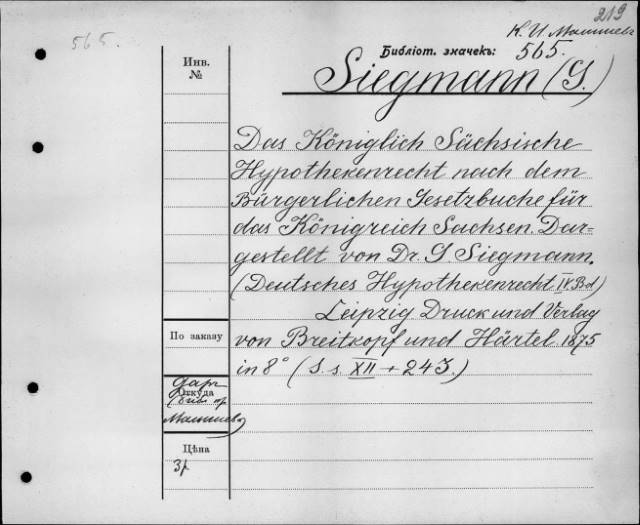 219
К. И. Малышев
565.
Библіот. значекъ: 565.
Siegmann (G.)
Инв.
№
Das Königlich Sächsische
Hypothekenrecht nach dem
Bürgerlichen Gesetzbuche für
das Königreich Sachsen. Dar=
gestellt von Dr. G. Siegmann.
(Deutsches Hypothekenrecht IV. Bd)
Leipzig Druck und Verlag
von Breitkopf und Härtel 1875
in 8° (S. s. XII + 243.)
По заказу
Даръ
Откуда
Малышева
Цѣна
3р